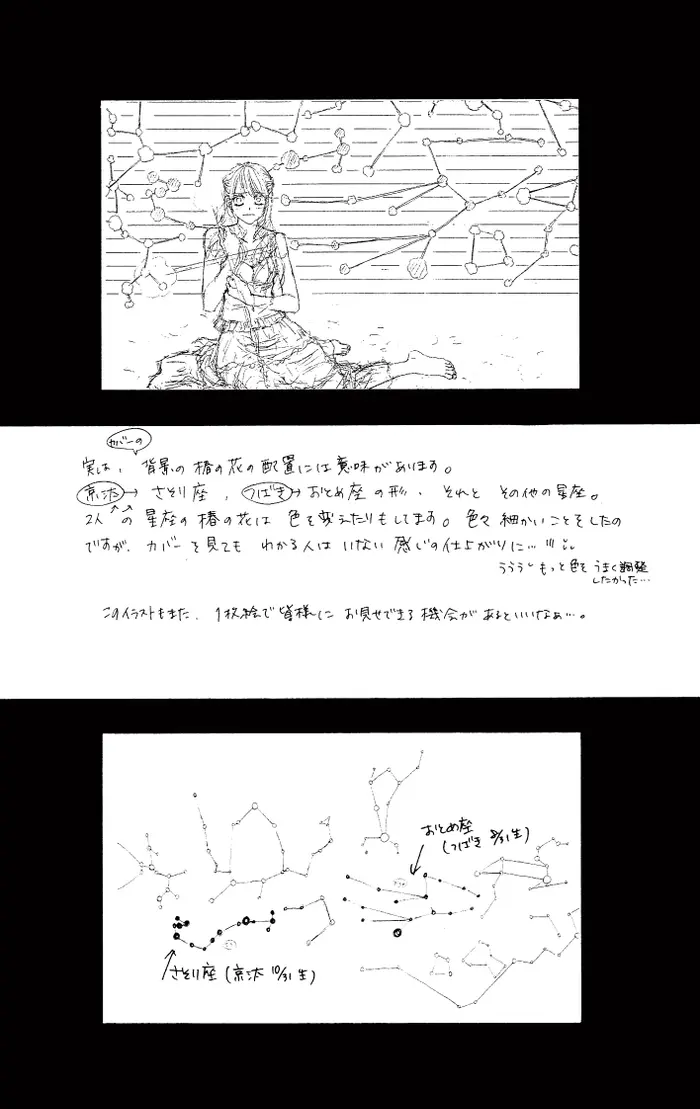 カバーの
実は、背景の椿の花の配置には意味があります。
京汰→さそり座、つばき→おとめ座の形、それと その他の星座。
2人の星座の椿の花は 色を変えたりもしてます。色々細かいことをしたの
ですが、カバーを見ても わかる人は いない 感じの仕上がりに…
ううう もっと色を うまく調整
したかった…
このイラストもまた、1枚絵で皆様に お見せできる機会があるといいなぁ…。
おとめ座
(つばき 8/31生)
さそり座(京汰 10/31生)